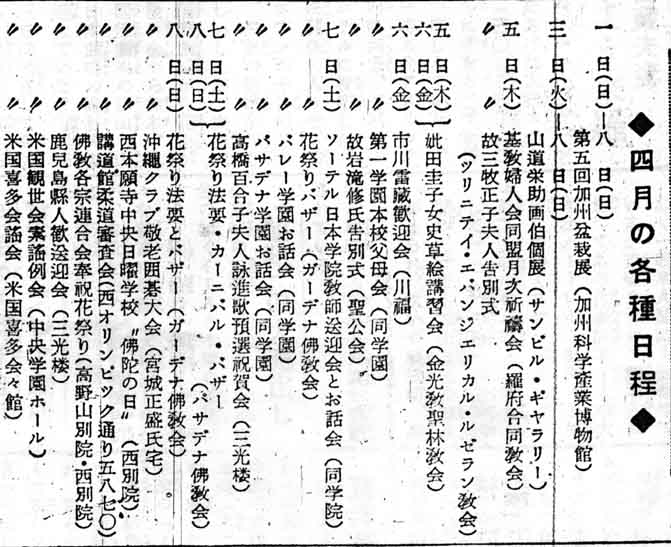 ◆四月の各種日程◆
一日(日)―八日(日)
第五回加州盆栽展(加州科学産業博物館)
三日(火)―八日(日)
山道栄助画伯個展(サンビル・ギャラリー)
五日(木)基教婦人会同盟月次祈禱会(羅府合同教会)
〃 〃 故三牧正子夫人告別式
(ツリニテイ・エバンジエリカル・ルゼラン教会)
五日(木)
六日(金)}妣田圭子女史草絵講習会(金光教聖林教会)
六日(金)市川雷蔵歓迎会(川福)
〃 〃 第一学園本校父母会(同学園)
〃 〃 故岩滝修氏告別式(聖公会)
七日(土)ソーテル日本学院教師送迎会とお話会(同学院)
〃 〃 花祭りバザー(ガーデナ佛教会)
〃 〃 バレー学園お話会(同学園)
〃 〃 パサデナ学園お話会(同学園)
〃 〃 高橋百合子夫人詠進歌預選祝賀会(三光楼)
七日(土)
八日(日)}花祭り法要・カーニバル・バザー
(パサデナ佛教会)
八日(日)花祭り法要とバザー(ガーデナ佛教会)。
〃 〃 沖縄クラブ敬老囲碁大会(宮城正盛氏宅)
〃 〃 西本願寺中央日曜学校〝佛陀の日〟(西別院)
〃 〃 講道館柔道審査会(西オリンピック通り五八七〇)
〃 〃 佛教各宗連合会奉祝花祭り(高野山別院・西別院)
〃 〃 鹿児島県人歓送迎会(三光楼)
〃 〃 米国観世会素謡例会(中央学園ホール)
〃 〃 米国喜多会謡会(米国喜多会々館)